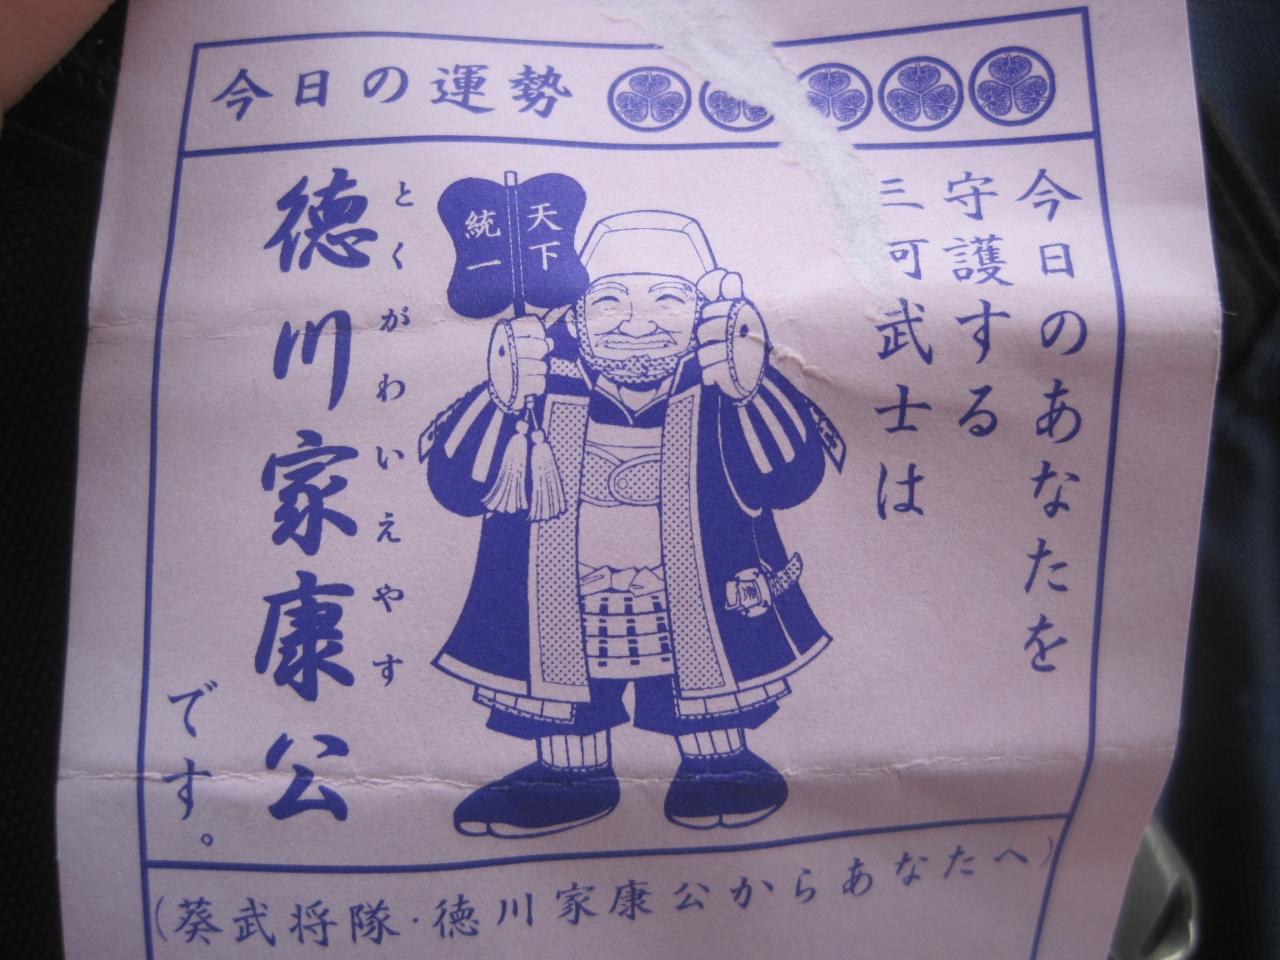 今日の運勢
今日のあなたを
守護する
三河武士は
天下
統一
とくがわいえやす
徳川家康公
です。
(葵武将隊・徳川家康公からあなたへ)